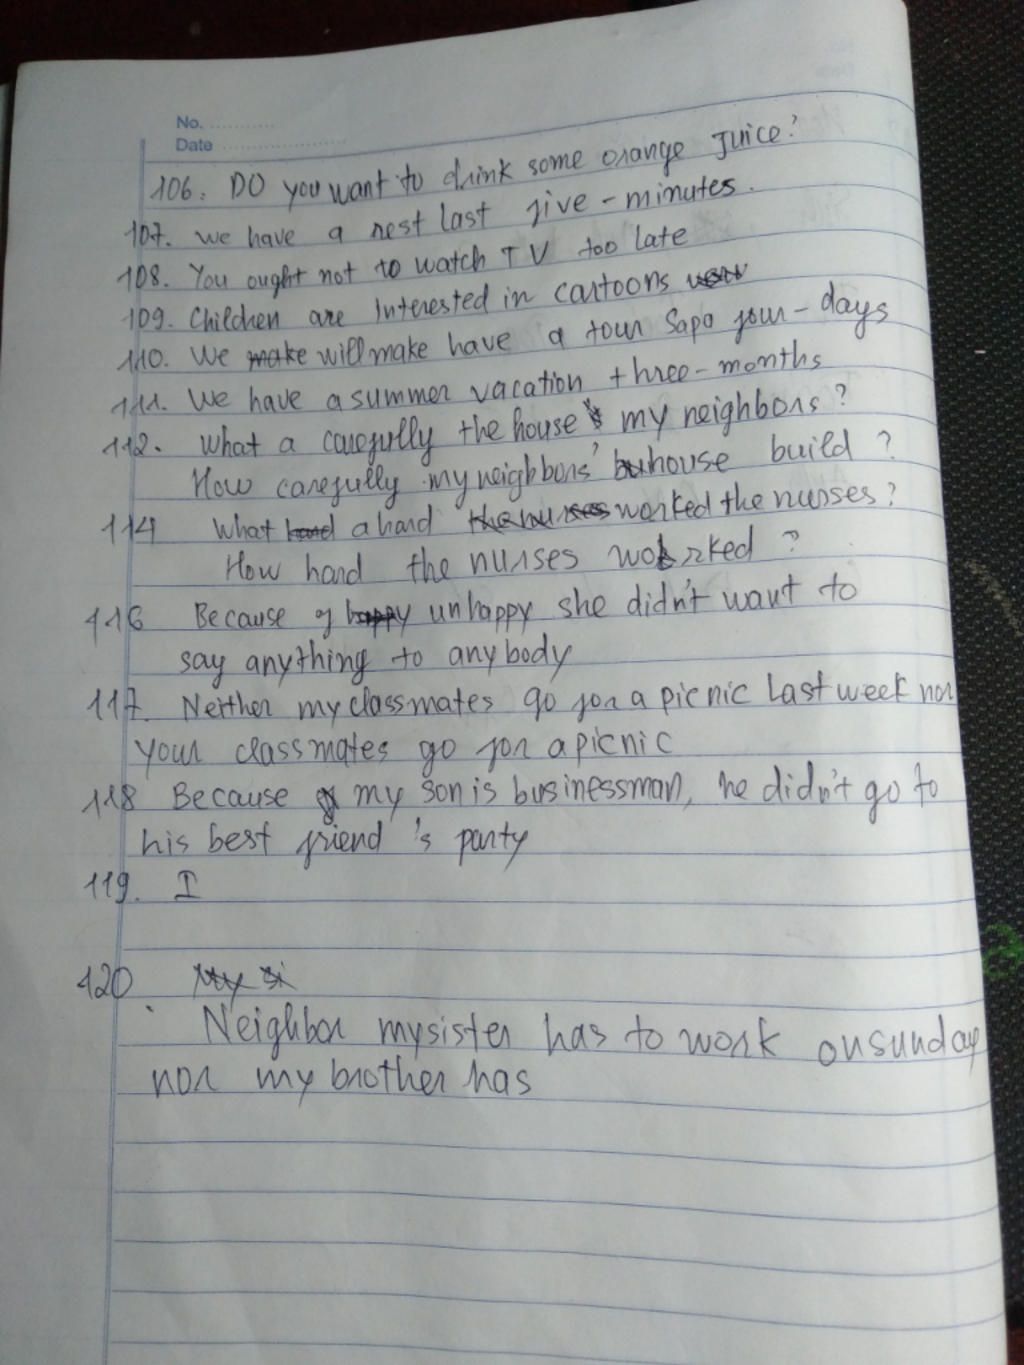 No. ...........
Date .....................
106. DO you want to drink some orange Juice?
107. we have a rest last five - minutes.
108. You ought not to watch TV too late
109. Children are Interested in cartoons
110. We make will make have a tour Sapa four - days
111. We have a summer vacation three - months
112. What a carefully the house my neighbors?
How carefully my neighbors' house build?
114 What hard a hard the nurses worked the nurses?
How hard the nurses worked?
116 Because of happy unhappy she didn't want to
say anything to anybody
117. Neither my classmates go for a picnic last week nor
your classmates go for a picnic
118 Because my son is businessman, he didn't go to
his best friend's party
119. I
120 My si
Neighbor my sister has to work on sunday
nor my brother has